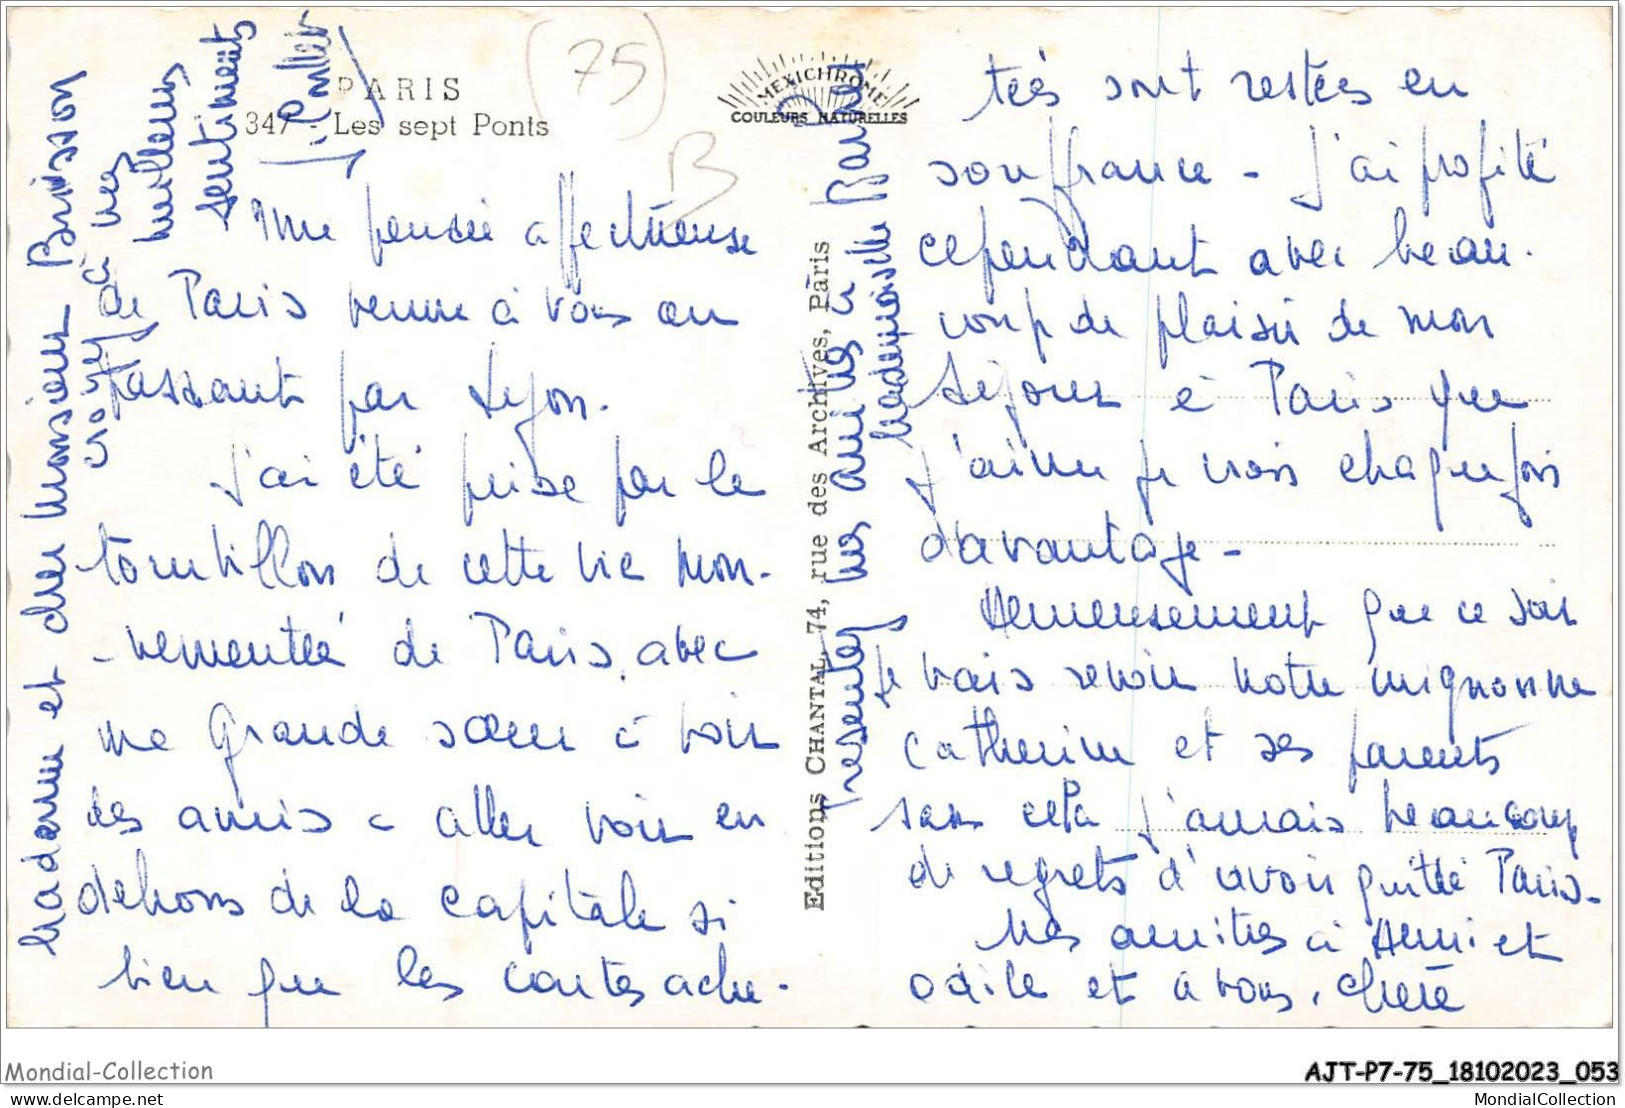 PARIS
347 - Les sept Ponts
(75)
B
MEXICHROME
COULEURS NATURELLES
Une pensée affectueuse
de Paris venue à vous en
passant par Lyon.
J'ai été prise par le
tourbillon de cette vie mou-
-vementée de Paris, avec
ma grande sœur à voir
des amis à aller voir en
dehors de la capitale si
bien que les cartes ache-
Editions CHANTAL, 74, rue des Archives, Paris
tées sont restées en
souffrance - J'ai profité
cependant avec beau-
coup de plaisir de mon
séjour à Paris que
j'aime je crois chaque fois
davantage -
Heureusement que ce soir
je vais revoir notre mignonne
Catherine et ses parents
sans cela j'aurais beaucoup
de regrets d'avoir quitté Paris -
Mes amitiés à Henri et
Odile et à vous, chère
Madame et cher Monsieur Brisson
croyez à mes
meilleurs
sentiments
présentez mes amitiés à
Mademoiselle
Mondial-Collection
AJT-P7-75_18102023_053
text
MondialCollection